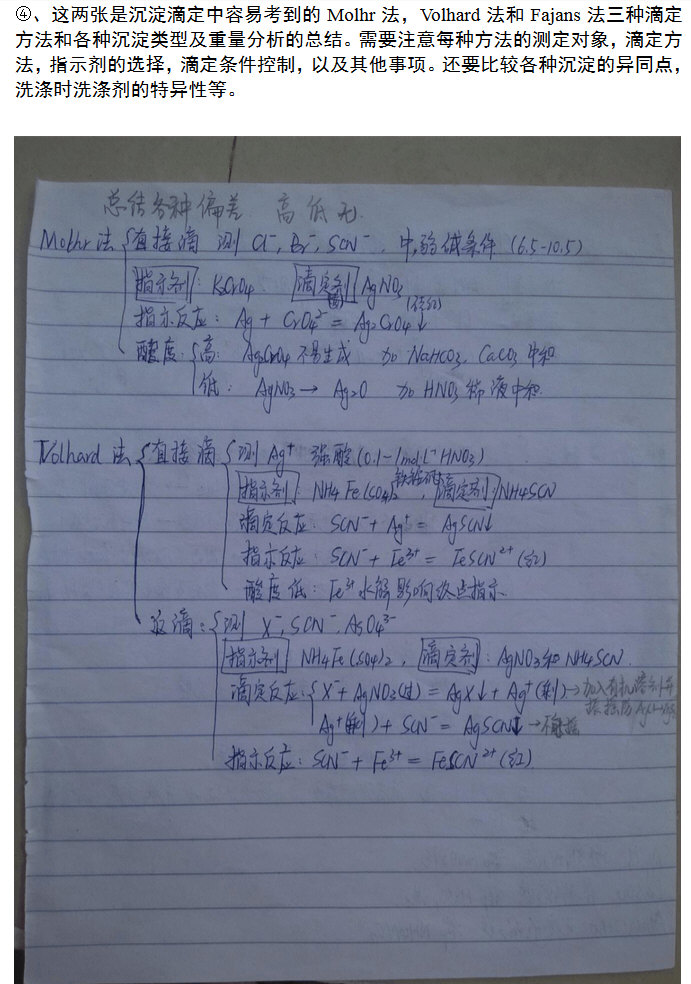 ④、这两张是沉淀滴定中容易考到的 Molhr 法，Volhard 法和 Fajans 法三种滴定
方法和各种沉淀类型及重量分析的总结。需要注意每种方法的测定对象，滴定方
法，指示剂的选择，滴定条件控制，以及其他事项。还要比较各种沉淀的异同点，
洗涤时洗涤剂的特异性等。
总结各种偏差 高 低 无.
Molhr法 直接滴 测 Cl⁻, Br⁻, SCN⁻. 中,弱碱条件 (6.5-10.5)
指示剂: K₂CrO₄. 滴定剂 AgNO₃
指示反应: Ag + CrO₄²⁻ = Ag₂CrO₄↓ (砖红)
酸度: 高: Ag₂CrO₄ 不易生成 加 NaHCO₃, CaCO₃ 中和
低: AgNO₃ → Ag₂O 加 HNO₃ 稀液中和.
Volhard 法 直接滴 测 Ag⁺ 强酸 (0.1-1mol·L⁻¹ HNO₃)
指示剂: NH₄Fe(SO₄)₂ 铁铵矾, 滴定剂: NH₄SCN
滴定反应: SCN⁻ + Ag⁺ = AgSCN↓
指示反应: SCN⁻ + Fe³⁺ = FeSCN²⁺ (红)
酸度低: Fe³⁺ 水解影响终点指示.
返滴: 测 X⁻, SCN⁻, AsO₄³⁻
指示剂 NH₄Fe(SO₄)₂, 滴定剂: AgNO₃和 NH₄SCN.
滴定反应: X⁻ + AgNO₃(过) = AgX↓ + Ag⁺(剩) → 加入有机溶剂并
Ag⁺(剩) + SCN⁻ = AgSCN↓ →
指示反应: SCN⁻ + Fe³⁺ = FeSCN²⁺ (红)